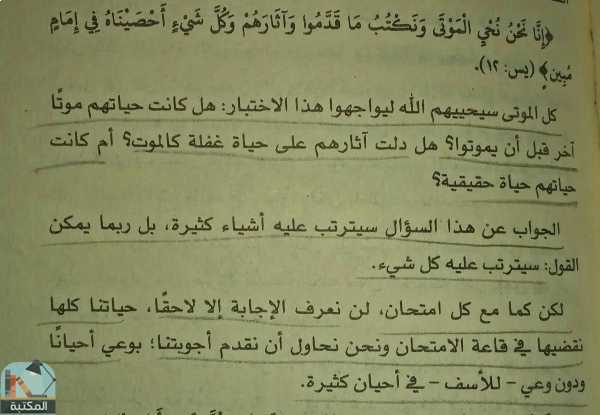 ﴿إِنَّا نَحْنُ نُحْيِ الْمَوْتَى وَنَكْتُبُ مَا قَدَّمُوا وَآثَارَهُمْ وَكُلَّ شَيْءٍ أَحْصَيْنَاهُ فِي إِمَامٍ
مُبِينٍ﴾ (يس: ١٢).
كل الموتى سيحييهم الله ليواجهوا هذا الاختبار: هل كانت حياتهم موتًا
آخر قبل أن يموتوا؟ هل دلت آثارهم على حياة غفلة كالموت؟ أم كانت
حياتهم حياة حقيقية؟
الجواب عن هذا السؤال سيترتب عليه أشياء كثيرة، بل ربما يمكن
القول: سيترتب عليه كل شيء.
لكن كما مع كل امتحان، لن نعرف الإجابة إلا لاحقًا، حياتنا كلها
نقضيها في قاعة الامتحان ونحن نحاول أن نقدم أجوبتنا؛ بوعي أحيانًا
ودون وعي - للأسف - في أحيان كثيرة.
المكتبة